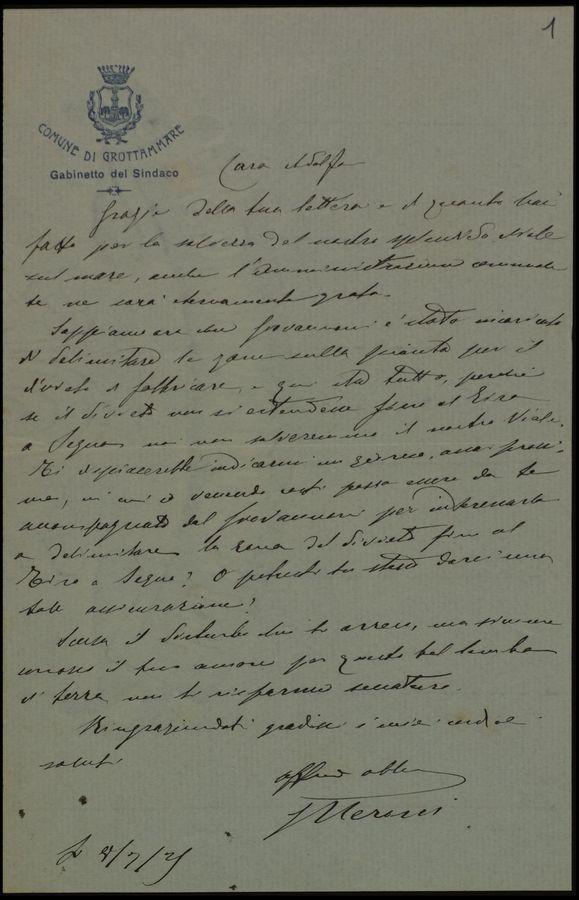 1
COMUNE DI GROTTAMMARE
Gabinetto del Sindaco
Caro Adolfo
Grazie della tua lettera e di quanto hai
fatto per la salvezza del nostro splendido viale
sul mare, anche l'Amministrazione comunale
te ne sarà eternamente grata.
Sappiamo ora che Giovannoni è stato incaricato
di delimitare le zone sulla pianta per il
divieto di fabbricare, e qui sta tutto, perché
se il divieto non si estendesse fino al Tiro
a Segno noi non salveremmo il nostro Viale.
Ti dispiacerebbe indicarmi un giorno, assai prossi-
mo, in cui io venendo costì possa essere da te
accompagnato dal Giovannoni per interessarlo
a delimitare la zona del divieto fino al
Tiro a Segno? O potresti tu stesso darci una
tale assicurazione?
Scusa il disturbo che ti arreco, ma siccome
conosco il tuo amore per questo bel lembo
di terra non ti risparmio seccature.
Ringraziandoti gradisci i miei cordiali
saluti
affmo obbmo
2/7/25